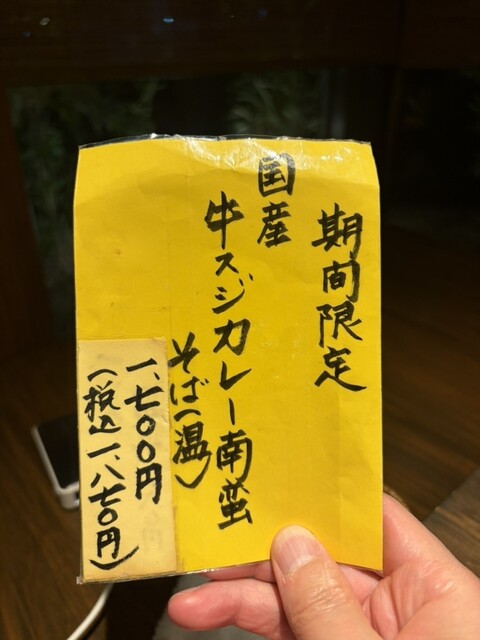 期間限定
国産
牛スジカレー南蛮
そば(温)
一、七〇〇円
(税込一、八七〇円)